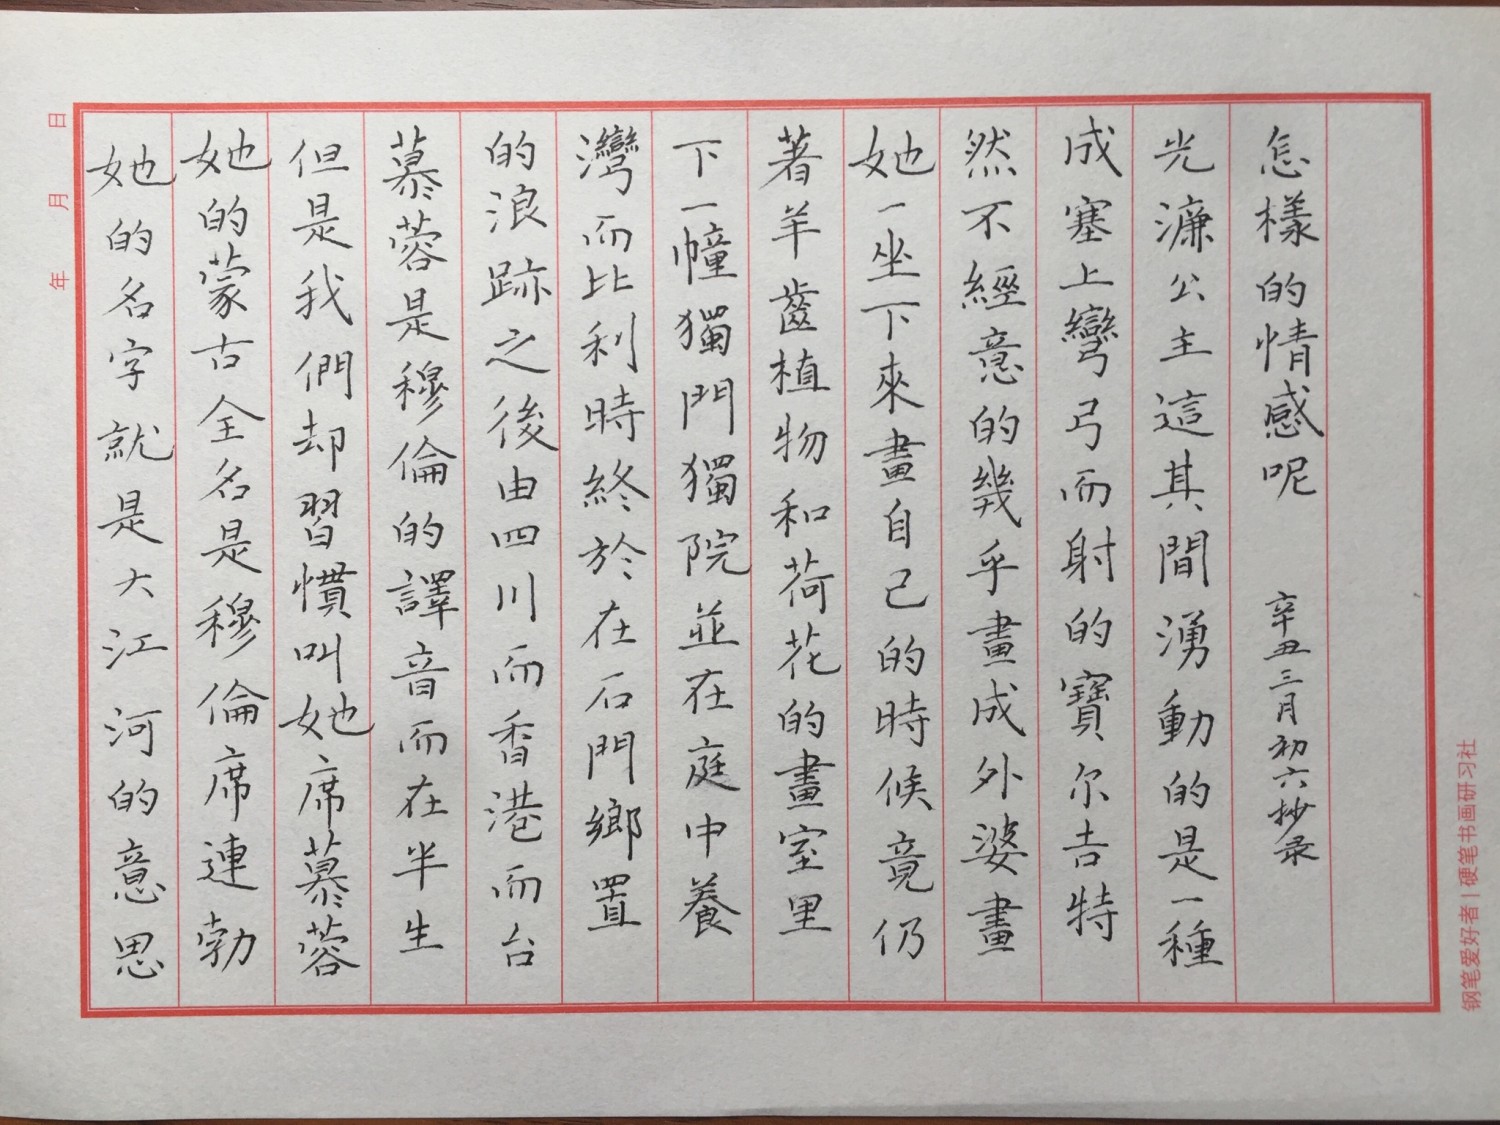 年 月 日
她的名字就是大江河的意思
她的蒙古全名是穆倫席連勃
但是我們却習慣叫她席慕蓉
慕蓉是穆倫的譯音而在半生
的浪跡之後由四川而香港而台
灣而比利時終於在石門鄉置
下一幢獨門獨院並在庭中養
著羊齒植物和荷花的畫室里
她一坐下來畫自己的時候竟仍
然不經意的幾乎畫成外婆畫
成塞上彎弓而射的寶尔吉特
光濂公主這其間湧動的是一種
怎樣的情感呢 辛丑三月初六抄录
钢笔爱好者|硬笔书画研习社